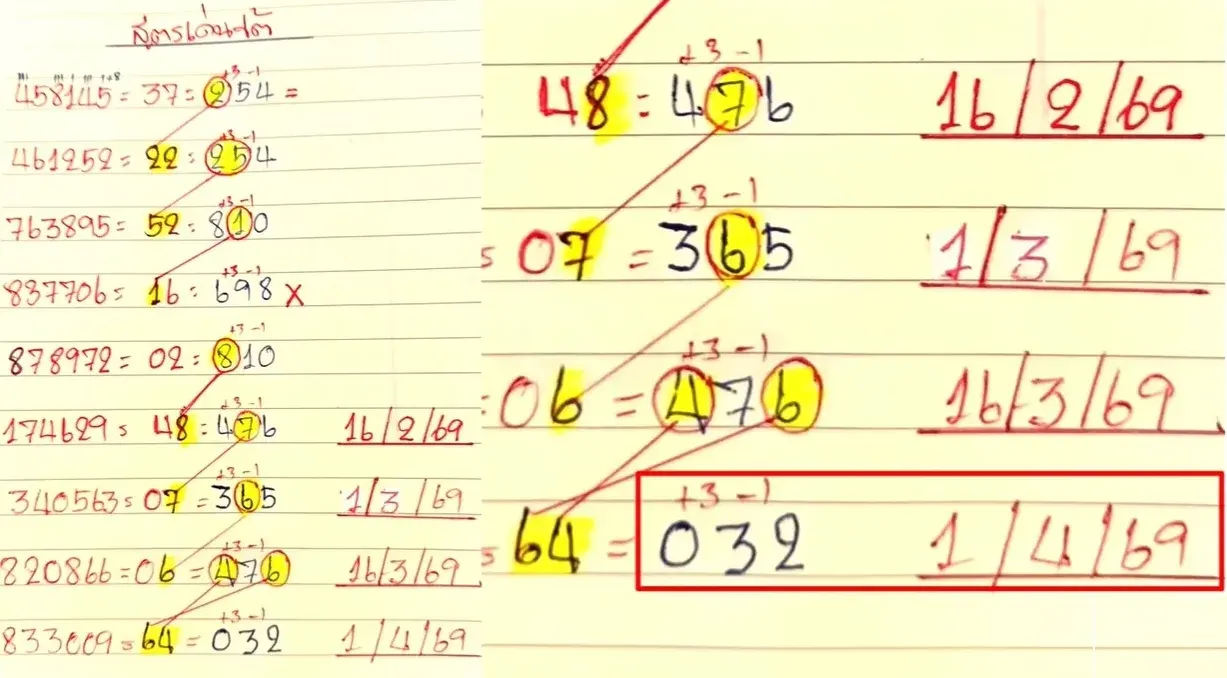 สูตรเด่นใต้
+3 -1
458145 = 37 = 254 =
+3 -1
461252 = 22 : 254
+3 -1
763895 = 52 : 810
+3 -1
837706 = 16 : 698 X
+3 -1
878972 = 02 : 810
+3 -1
174629 = 48 : 476 16/2/69
+3 -1
340563 = 07 = 365 1/3/69
+3 -1
820866 = 06 = 476 16/3/69
+3 -1
833009 = 64 = 032 1/4/69
+3 -1
48 : 476 16/2/69
+3 -1
07 = 365 1/3/69
+3 -1
06 = 476 16/3/69
+3 -1
64 = 032 1/4/69